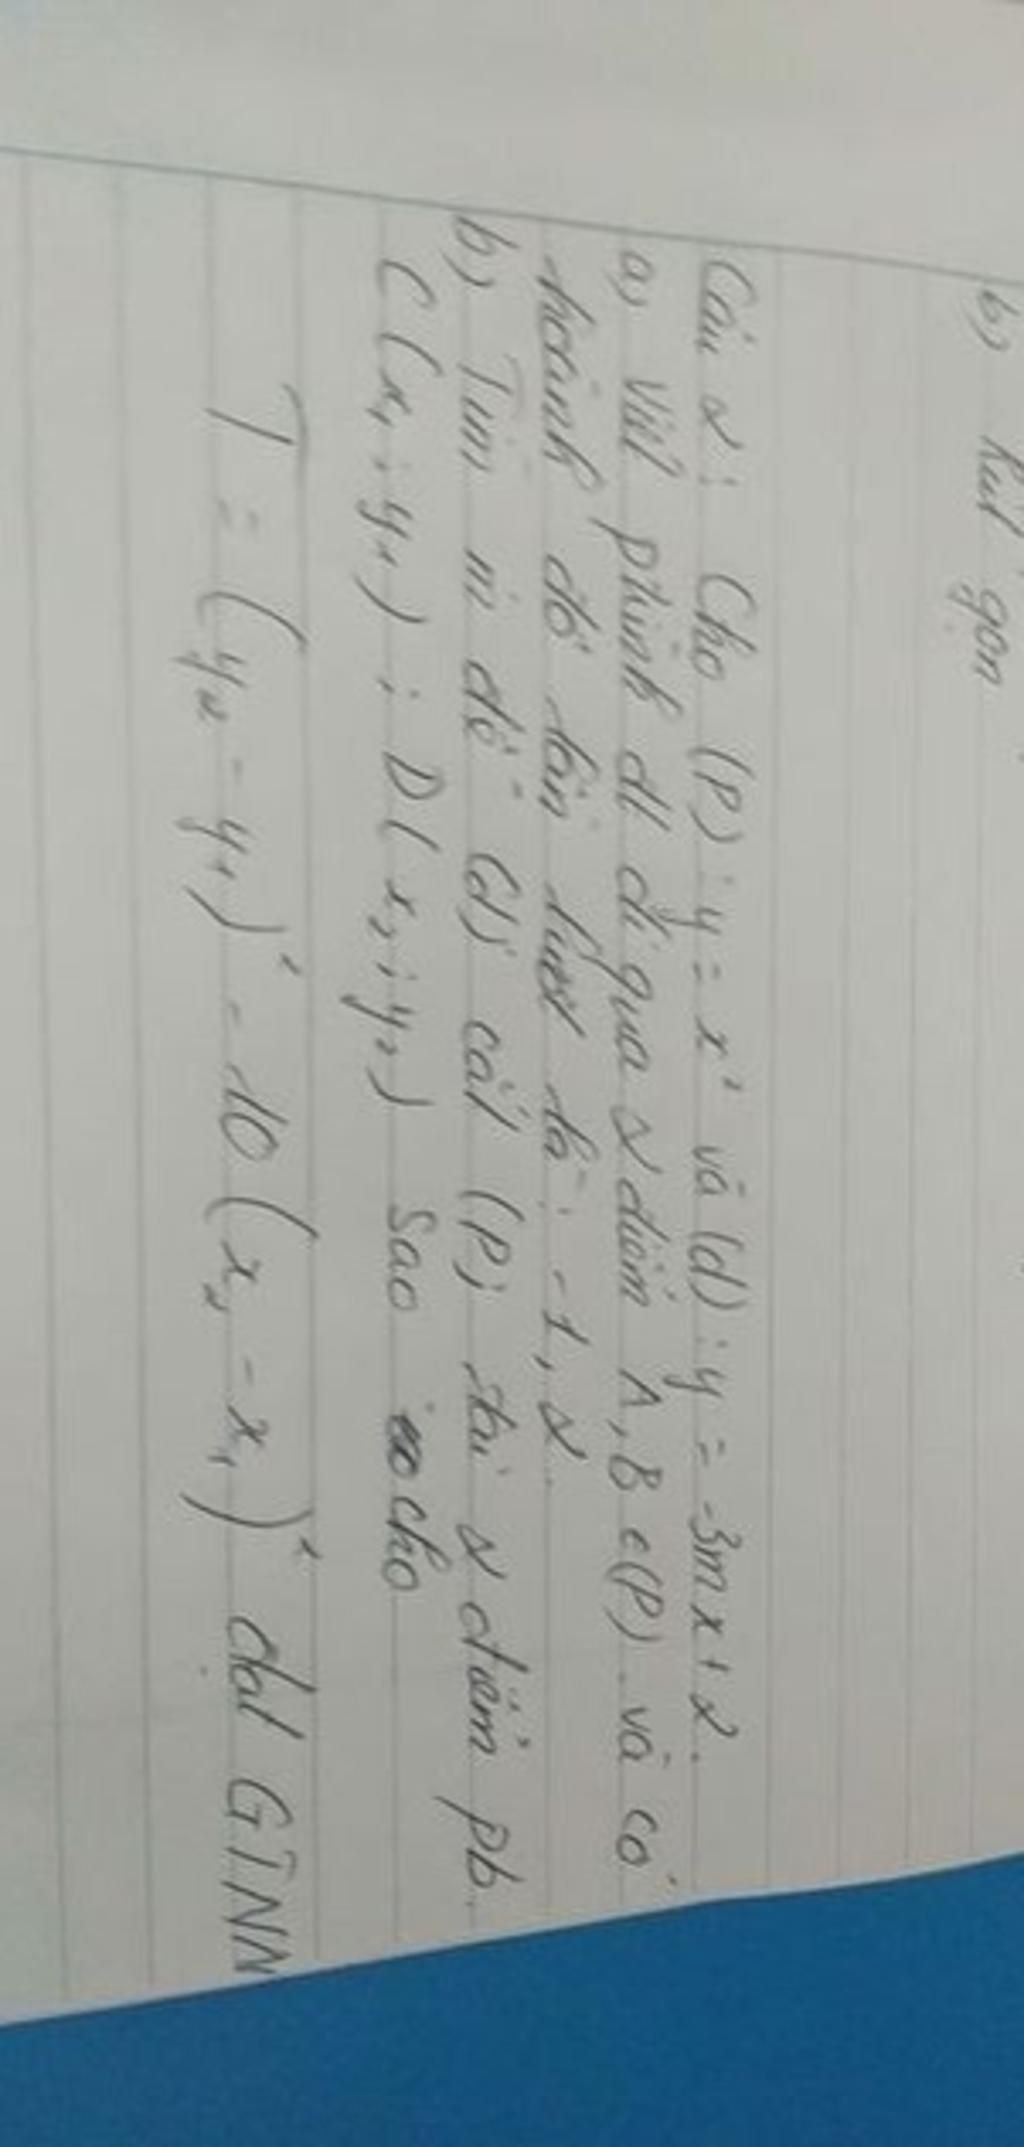 b) Rút gọn
Câu 2: Cho (P): y = x² và (d): y = -3mx + 2.
a) Viết phình đt đi qua 2 điểm A, B ∈ (P) và có
hoành độ lần lượt là: -1, 2.
b) Tìm m để (d) cắt (P) tại 2 điểm pb.
C(x₁; y₁); D(x₂; y₂) Sao cho
T = (y₂ - y₁)² - 10(x₂ - x₁)² đạt GTNN